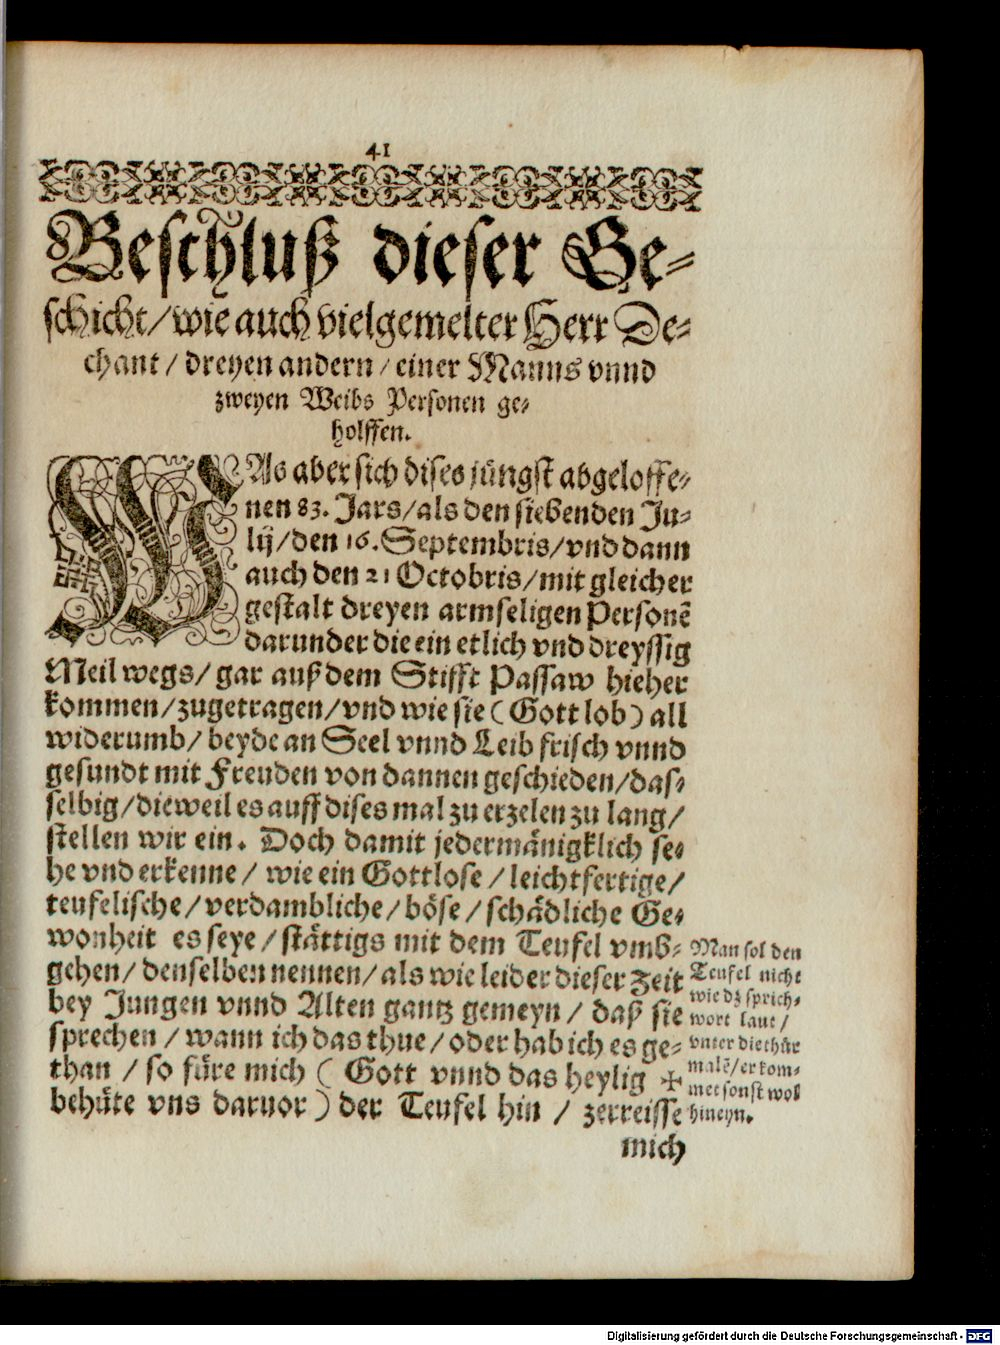 41
Beschluß dieser Ge-
schicht/wie auch vielgemelter Herr De-
chant / dreyen andern / einer Manns vnnd
zweyen Weibs Personen ge-
holffen.
WAs aber sich dises jüngst abgeloffe-
nen 83. Jars/als den siebenden Ju-
lij/den 16. Septembris/vnd dann
auch den 21 Octobris/mit gleicher
gestalt dreyen armseligen Personē
darunder die ein etlich vnd dreyssig
Meil wegs/ gar auß dem Stifft Passaw hieher
kommen/zugetragen/vnd wie sie (Gott lob) all
widerumb/ beyde an Seel vnnd Leib frisch vnnd
gesundt mit Freuden von dannen geschieden/das-
selbig/dieweil es auff dises mal zu erzelen zu lang/
stellen wir ein. Doch damit jedermänigklich se-
he vnd erkenne / wie ein Gottlose / leichtfertige/
teufelische/verdambliche/böse/schädliche Ge-
wonheit es seye/stättigs mit dem Teufel vmb-
gehen/denselben nennen/als wie leider dieser zeit
bey Jungen vnnd Alten gantz gemeyn / daß sie
sprechen / wann ich das thue/oder hab ich es ge-
than / so füre mich ( Gott vnnd das heylig ✠
behüte vns daruor) der Teufel hin / zerreisse
mich
Man sol den
Teufel nicht
wie dz sprich-
wort laut /
vnter die thür
malē/er kom-
met sonst wol
hineyn.
Digitalisierung gefördert durch die Deutsche Forschungsgemeinschaft - DFG